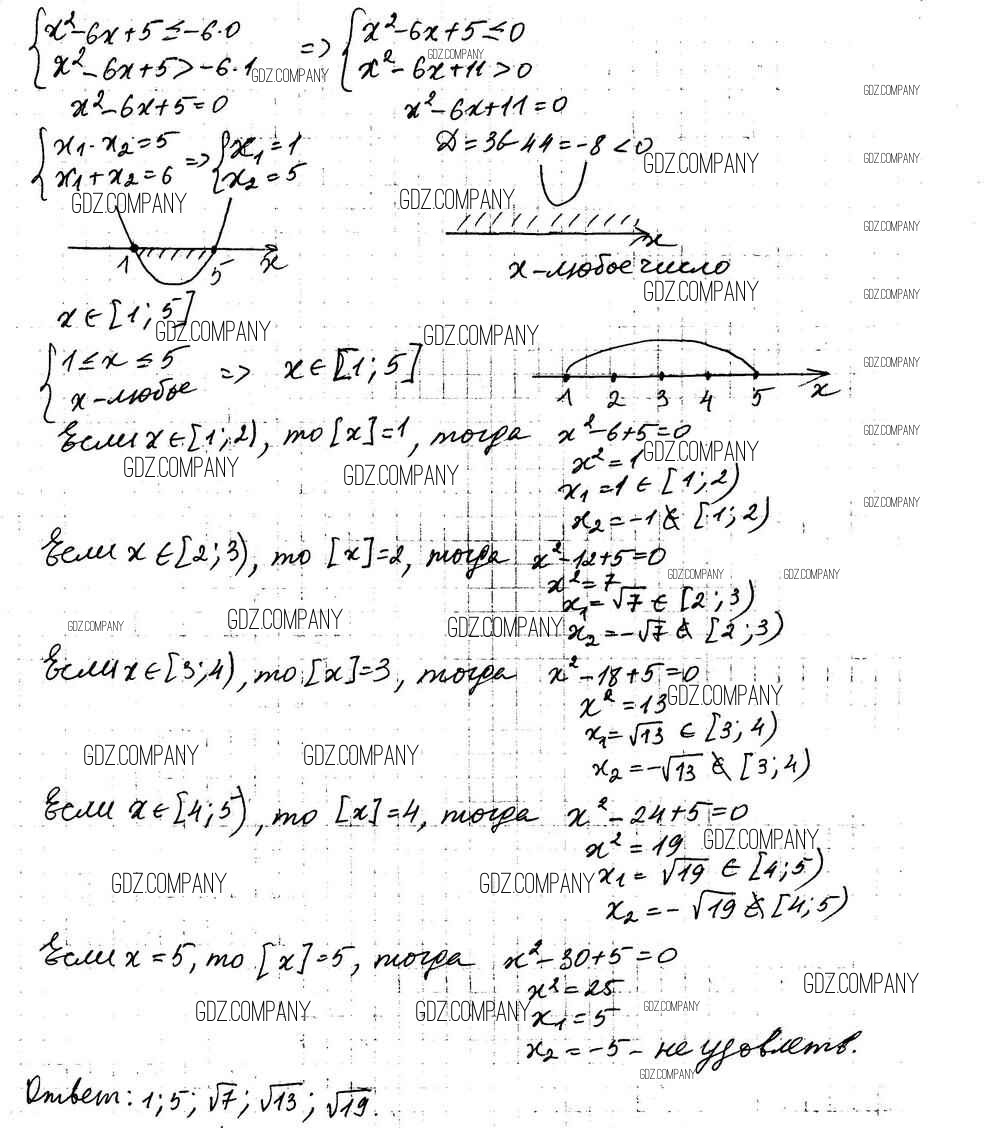 {x²-6x+5≤-6·0 => {x²-6x+5≤0
{x²-6x+5>-6·1 {x²-6x+11>0
GDZ.COMPANY GDZ.COMPANY GDZ.COMPANY
x²-6x+5=0 x²-6x+11=0
{x₁·x₂=5 => {x₁=1 Д=36-44=-8<0
{x₁+x₂=6 {x₂=5 GDZ.COMPANY
GDZ.COMPANY GDZ.COMPANY
GDZ.COMPANY
1 5 x x
x-любое число
x∈[1;5] GDZ.COMPANY GDZ.COMPANY
GDZ.COMPANY GDZ.COMPANY
{1≤x≤5 => x∈[1;5] GDZ.COMPANY
{x-любое 1 2 3 4 5 x
Если x∈[1;2), то [x]=1, тогда x²-6+5=0 GDZ.COMPANY
x²=1 GDZ.COMPANY
GDZ.COMPANY GDZ.COMPANY
x₁=1∈[1;2)
x₂=-1∉[1;2) GDZ.COMPANY
Если x∈[2;3), то [x]=2, тогда x²-12+5=0
x²=7 GDZ.COMPANY GDZ.COMPANY
x₁=√7∈[2;3)
GDZ.COMPANY GDZ.COMPANY GDZ.COMPANY x₂=-√7∉[2;3)
Если x∈[3;4), то [x]=3, тогда x²-18+5=0
x²=13 GDZ.COMPANY
x₁=√13∈[3;4)
GDZ.COMPANY GDZ.COMPANY
x₂=-√13∉[3;4)
Если x∈[4;5), то [x]=4, тогда x²-24+5=0
x²=19 GDZ.COMPANY
x₁=√19∈[4;5)
GDZ.COMPANY GDZ.COMPANY
x₂=-√19∉[4;5)
Если x=5, то [x]=5, тогда x²-30+5=0
x²=25 GDZ.COMPANY
GDZ.COMPANY GDZ.COMPANY x₁=5 GDZ.COMPANY
x₂=-5-не удовлетв.
GDZ.COMPANY
Ответ: 1;5;√7;√13;√19.